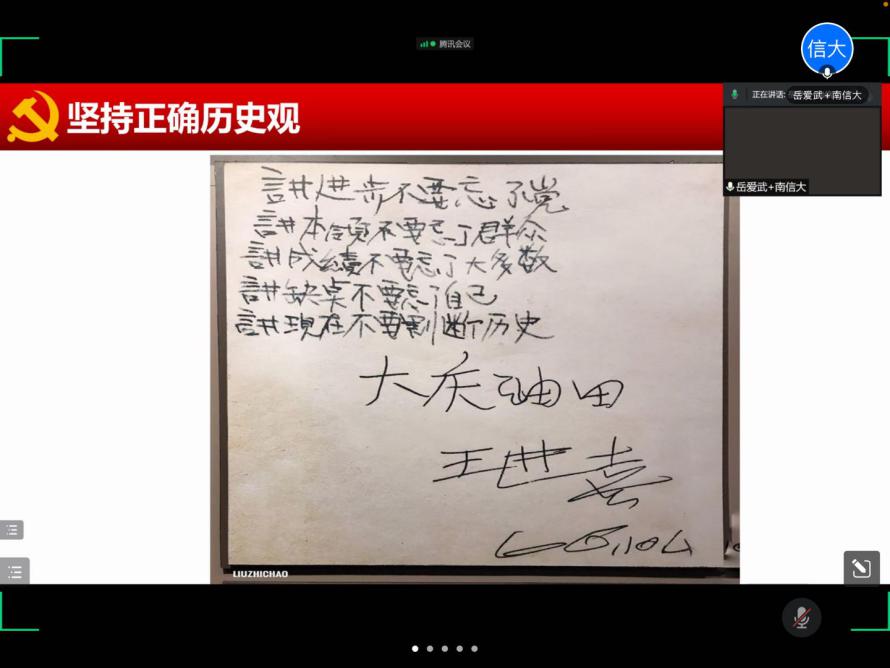 腾讯会议
信大
正在讲话: 岳爱武+南信大
岳爱武+南信大
坚持正确历史观
讲进步不要忘了党
讲本领不要忘了群众
讲成绩不要忘了大多数
讲缺点不要忘了自己
讲現在不要割断历史
大庆油田
王进喜
LIUZHICHAO